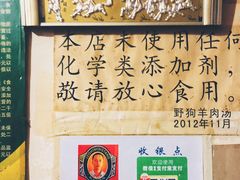 本店未使用任何
化学类添加剂，
敬请放心食用。
野狗羊肉汤
2012年11月
收银点
欢迎使用